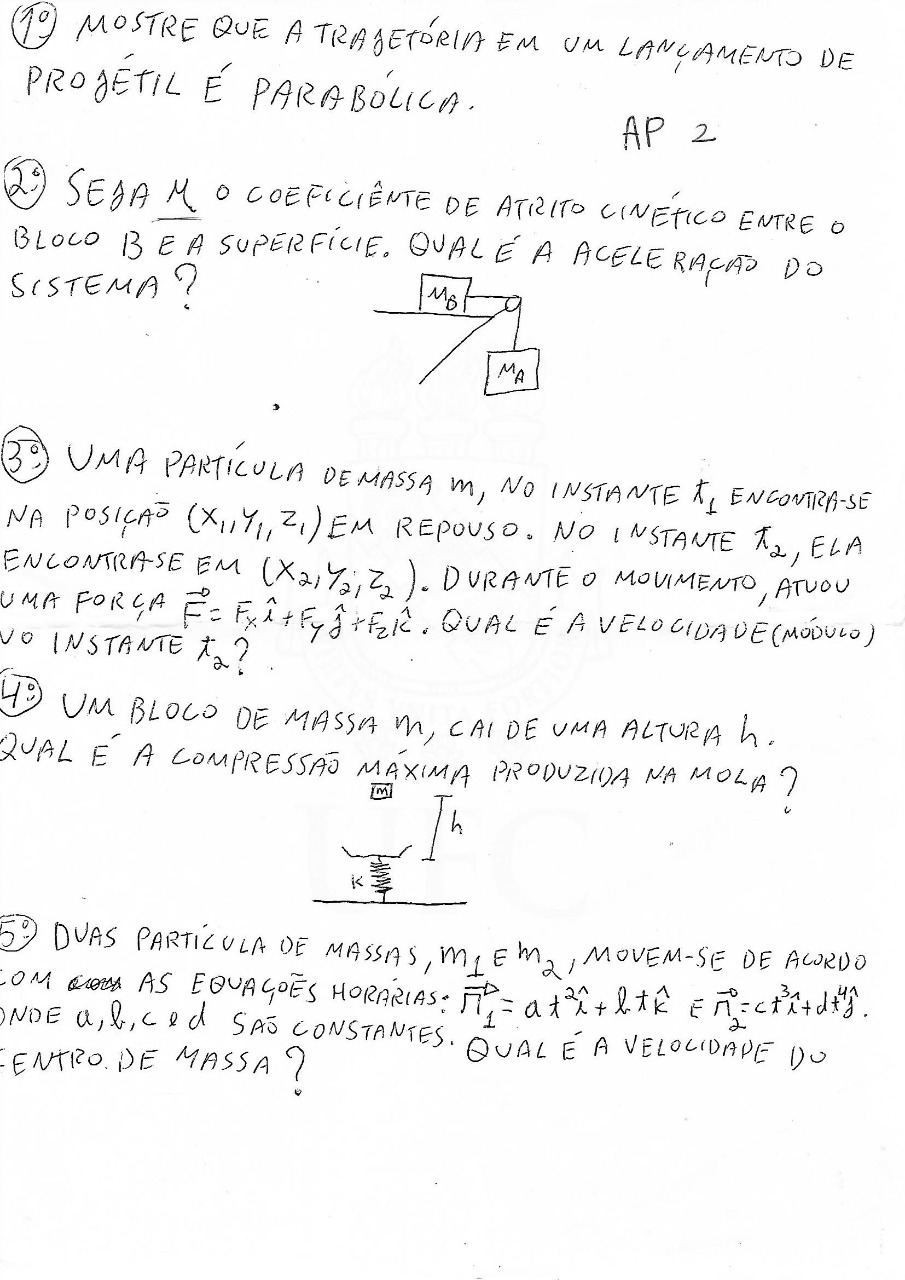 1º) MOSTRE QUE A TRAJETÓRIA EM UM LANÇAMENTO DE
PROJÉTIL É PARABÓLICA.
AP 2
2º) SEJA μ O COEFICIÊNTE DE ATRITO CINÉTICO ENTRE O
BLOCO B E A SUPERFÍCIE. QUAL É A ACELERAÇÃO DO
SISTEMA?
M_B
M_A
3º) UMA PARTÍCULA DE MASSA m, NO INSTANTE t₁ ENCONTRA-SE
NA POSIÇÃO (X₁,Y₁,Z₁) EM REPOUSO. NO INSTANTE t₂, ELA
ENCONTRA-SE EM (X₂,Y₂,Z₂). DURANTE O MOVIMENTO, ATUOU
UMA FORÇA F⃗ = Fxî+Fyĵ+Fzk̂. QUAL É A VELOCIDADE (MÓDULO)
NO INSTANTE t₂?
4º) UM BLOCO DE MASSA m, CAI DE UMA ALTURA h.
QUAL É A COMPRESSÃO MÁXIMA PRODUZIDA NA MOLA?
m
h
K
UFC
5º) DUAS PARTÍCULA DE MASSAS, m₁ E m₂, MOVEM-SE DE ACORDO
COM AS EQUAÇÕES HORÁRIAS: r⃗₁ = at²î + btk̂ E r⃗₂ = ct³î + dt⁴ĵ.
ONDE a, b, c e d SÃO CONSTANTES. QUAL É A VELOCIDADE DO
CENTRO DE MASSA?